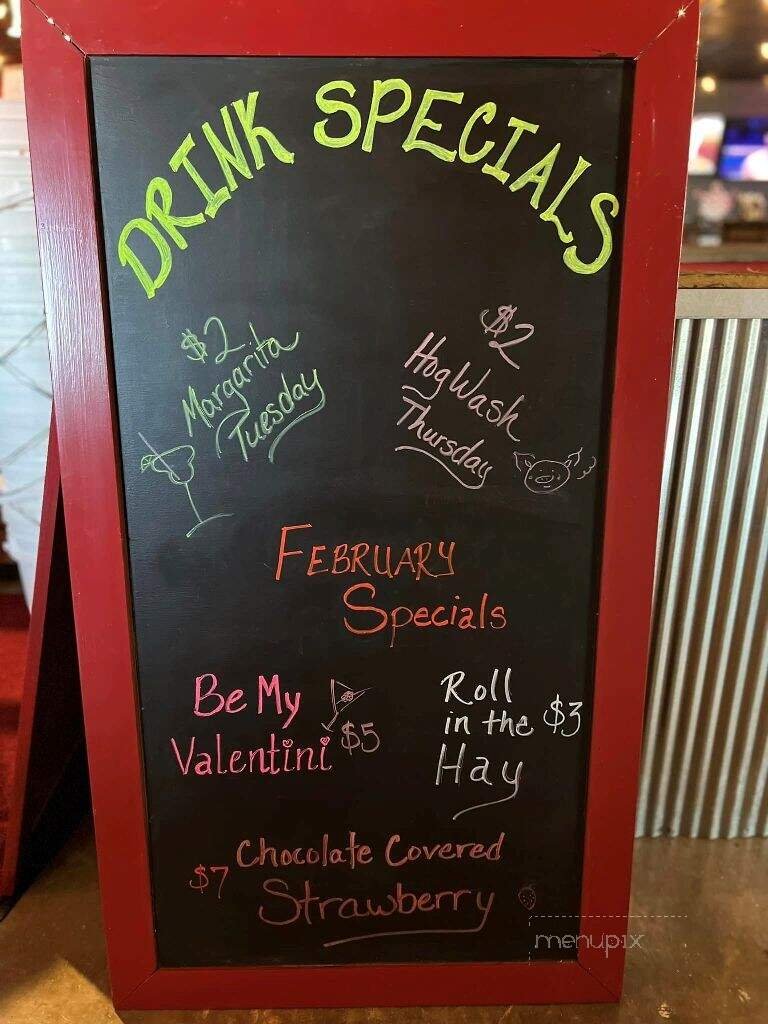 DRINK SPECIALS
$2
Margarita
Tuesday
$2
HogWash
Thursday
FEBRUARY
Specials
Be My
Valentini $5
Roll
in the $3
Hay
$7 Chocolate Covered
Strawberry
menupix